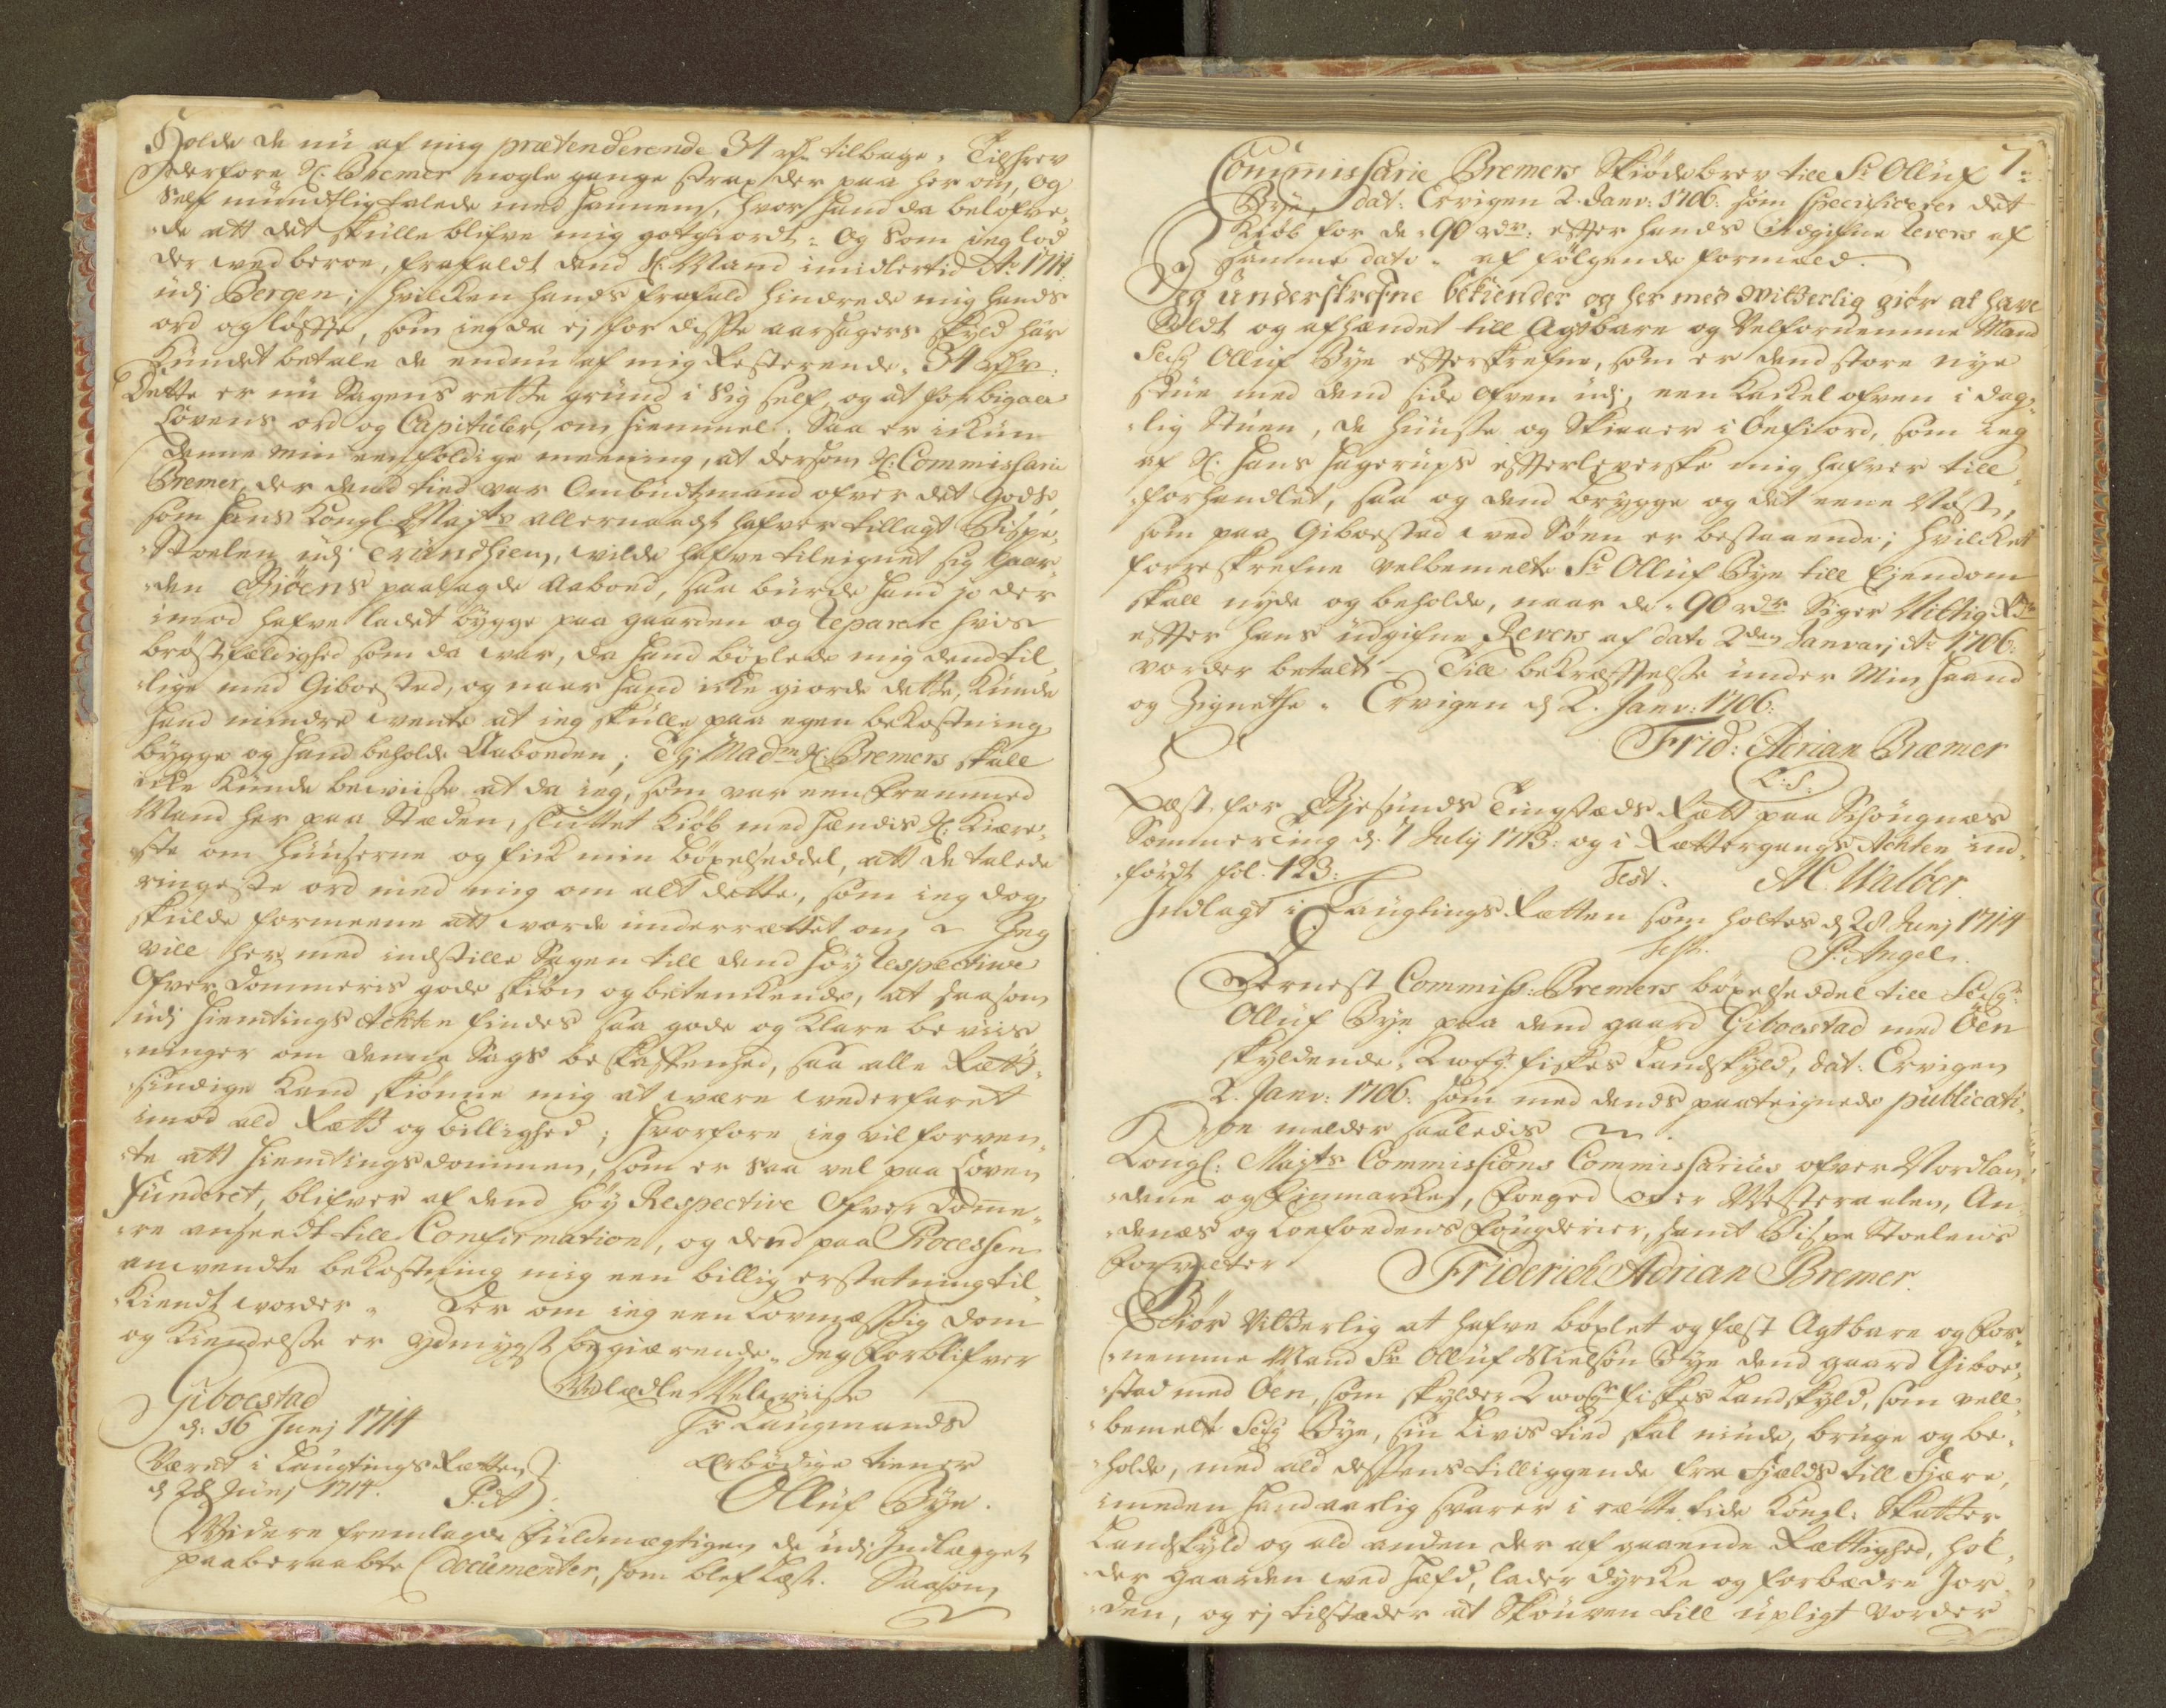 Holde de nu af mig prætenderende 34 rdr tilbage. Tilskrev
derfore H: Bremer nogle gange strax der paa her om, og
Self mündtlig talede med hannem, hvor hand da belofve-
de att det skulle blifve mig gotgiordt: Og som ieg lod
der ved beroe, frafaldt dend S: Mand imidlertid Ao 1711
udj Bergen; hvilken hands frafald hindrede mig hands
ord og løffte, som ieg da ej for disse aarsagers skyld har
Kundet betale de endnu af mig Resterende 34 rdr:
Dette er nu Sagens rette grund i sig self, og at forbigaa
Lovens ord og Capituler, om hiemmel; Saa er ickun
denne min eenfoldige meening, at dersom H: Commissarie
Bremer, der dend tid var Ombudtzmand ofver det Gods,
som Hans Kongl: Majts allernaadst hafver tillagt Bispe-
Stoelen udj Trundhiem, vilde hafve tileignet sig Gaar-
den Bjöens paalagde Aaboed, saa burde hand jo der
imod hafve ladet bygge paa gaarden og Reparere hvis
bröstfældighed som da var, da hand böxlede mig dend til-
lige med Giboestad, og naar hand icke giorde dette, kunde
hand mindre vente at ieg skulle paa egen bekostning
bygge og hand beholde Aaboeden; Thj Madm Sl: Bremers skall
icke kunde beviise at da ieg, som var een fremmed
Mand her paa Stæden, sluttet Kiöb med hendis Sl: Kiære-
ste om Huuserne og fick min böxelseddel, att de talede
ringeste ord med mig om alt dette, som ieg dog
skulde formeene att vorde underrættet om. Jeg
vill her med indstille Sagen till dend höy Respective
Ofver Dommeris gode skiön og betenckende, at saasom
udj Hiemtings Ackten findes saa gode og klare beviis-
ninger om denne Sags beskaffenhed, saa alle Rætt-
sindige kand skiönne mig at være vederfaret
imod ald Rætt og billighed; hvorfore ieg vil forven-
te att Hiemtingsdommen, som er saa vel paa Loven
funderet, blifver af dend höy Respective Ofver Domme-
re anseedt till Confirmation, og dend paa Processen
anvendte bekostning mig een billig erstatning til-
kiendt vorder. Der om ieg een Lovmæssig dom
og kiendelse er ydmygst begiærende. Jeg forblifver
Giboestad
d: 16 Junj 1714
Velædle Velviise
Hr Laugmands
Været i Laugtings Rætten
d 28 Junj 1714. P: A
ærbödige tiener
Olluf Bye.
Widere fremlagde fuldmægtigen de udj Indlægget
paaberaabte Documenter, som blef læst. Saasom
7:
Commissarie Bremers Skiödebrev till Sr Olluf
Bye, dat: Ervigen 2. Janv: 1706. som Specificerer det
Kiöb for de 90 rdr: efter hands udgifne Revers af
samme dato. af fölgende formeld.
Jeg Underskrefne bekiender og her med vitterlig giör at have
Soldt og afhændet till Agtbare og Velfornemme Mand
Seigr Olluf Bye efterskrefne, som er dend store nye
stue med dend side ofven udj, een kackelofven i dag-
lig Stuen, de Huuse og Skiaaer i Öefiord, som ieg
af Sl: Hans Hagerups efterleverske mig hafver till-
forhandlet, saa og dend brygge og det eene Nöst,
som paa Giboestad ved Söen er bestaaende; Hvilcket
forreskrefne velbemelte Sr Olluf Bye till Ejendom
skall nyde og beholde, naar de 90 rdr Siger Nittig Rdr
efter hans udgifne Revers af dato 2den Januarj Ao 1706.
vorder betalt. Till bekræftelse under Min Haand
og Zignethe. Ervigen d 2. Janv: 1706.
Frid: Adrian Bræmer
L: S:
Læst for Gjesunds Tingstæds Rætt paa
Sommerting d. 7 Julij 1713. og i Rættergangs Ackten ind-
fördt fol. 123:
Test. AC. Walber.
Indlagt i Laugtings Rætten som holtes d 28 Junj 1714
Test. P: Angel.
Dernest Commiss: Bremers böxelseddel till Seigr
Olluf Bye paa dend gaard Giboestad med Öen
skyldende 2 wog fiskes Landskyld, dat: Ervigen
2. Janv: 1706. som med dends paateignede publicati-
on melder saaledis
Kongl: Majts Commissions Commissarius ofver Nordlan-
dene og Finmarcken, Foeged over Westeraalen, An-
denæs og Loefoedens Fougderier, samt Bispe Stoelens
Forvalter
Friderich Adrian Bremer.
Giör Vitterlig at hafve böxlet og fæst Agtbare og For-
nemme Mand Sr Olluf Nielsön Bye dend gaard Giboe-
stad med Öen, som skylder 2 wogr fiskes Landskyld, som vell-
bemelte Seigr Bye, sin Livs tid skal niude, bruge og be-
holde, med ald dessens tilliggende fra Fjælds till Fjære,
imeden hand aarlig svarer i rætte tide Kongl: Skatter
Landskyld og ald anden der af gaaende Rættighed, hol-
der Gaarden ved Hæfd, lader dyrcke og forbædre Jor-
den, og ej tilstæder at Skouven till upligt vorder